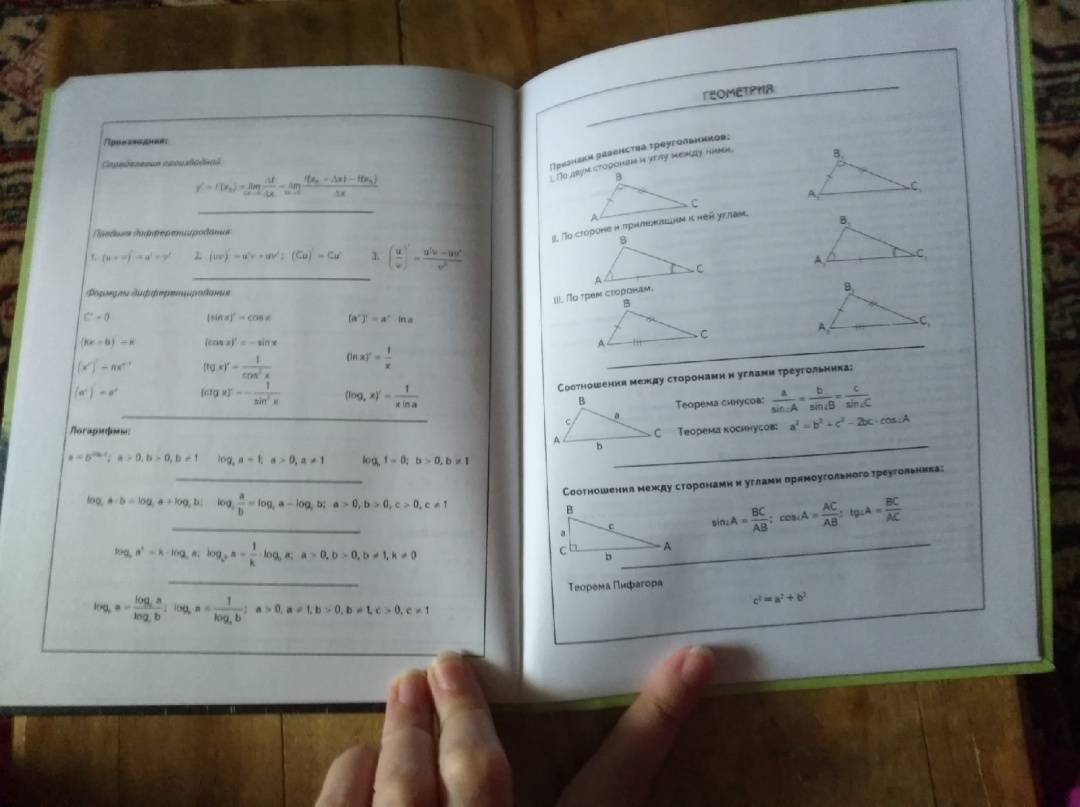 Производная:
Определение производной:
y' = f'(x₀) = lim Δf/Δx = lim (f(x₀ + Δx) − f(x₀))/Δx
Правила дифференцирования
1. (u + v)' = u' + v' 2. (uv)' = u'v + uv'; (Cu)' = Cu' 3. (u/v)' = (u'v − uv')/v²
Формулы дифференцирования
C' = 0 (sin x)' = cos x (aˣ)' = aˣ · ln a
(kx + b)' = k (cos x)' = − sin x (ln x)' = 1/x
(xⁿ)' = nxⁿ⁻¹ (tg x)' = 1/cos² x
(eˣ)' = eˣ (ctg x)' = − 1/sin² x (logₐ x)' = 1/(x ln a)
Логарифмы:
a > 0, b > 0, b ≠ 1 logₐ a = 1; a > 0, a ≠ 1 log_b 1 = 0; b > 0, b ≠ 1
log_c a · b = log_c a + log_c b; log_c a/b = log_c a − log_c b; a > 0, b > 0, c > 0, c ≠ 1
log_b aᵏ = k · log_b a; a = 1/k · log_b a; a > 0, b > 0, b ≠ 1, k ≠ 0
log_b a = log_c a/log_c b; log_b a = 1/logₐ b; a > 0, a ≠ 1, b > 0, b ≠ 1, c > 0, c ≠ 1
ГЕОМЕТРИЯ
Признаки равенства треугольников:
I. По двум сторонам и углу между ними.
B
A C
B₁
A₁ C₁
II. По стороне и прилежащим к ней углам.
B
A C
B₁
A₁ C₁
III. По трем сторонам.
B
A C
B₁
A₁ C₁
Соотношения между сторонами и углами треугольника:
B
c a
A C
b
Теорема синусов: a/sin∠A = b/sin∠B = c/sin∠C
Теорема косинусов: a² = b² + c² − 2bc · cos∠A
Соотношения между сторонами и углами прямоугольного треугольника:
B
a c
C A
b
sin∠A = BC/AB; cos∠A = AC/AB; tg∠A = BC/AC
Теорема Пифагора
c² = a² + b²